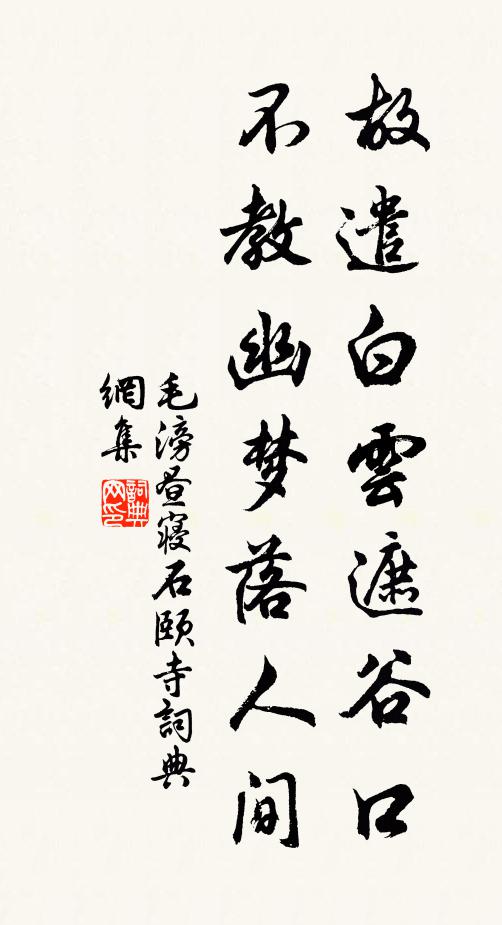 故遣白雲遮谷口
不教幽梦落人间
毛滂昼寝石頤寺詞典
網集
詞典
网印